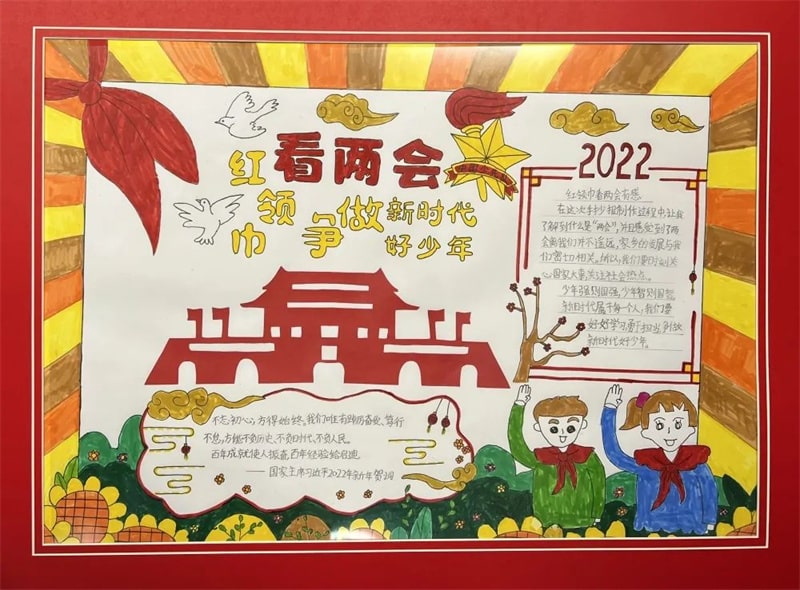 红
领
巾
看两会
争做新时代
好少年
2022
红领巾看两会有感
在这次手抄报制作过程中让我
了解到什么是“两会”,并且感受到了两
会离我们并不遥远,家乡的发展与我
们密切相关。所以,我们要时刻关
心国家大事关注社会热点。
少年强则国强,少年智则国智
新时代属于每个人,我们要
好好学习勇于担当,争做
新时代好少年。
不忘初心,方得始终。我们唯有踔厉奋发、笃行
不怠,方能不负历史、不负时代、不负人民。
百年成就使人振奋,百年经验给启迪
——国家主席习近平2022年新年贺词